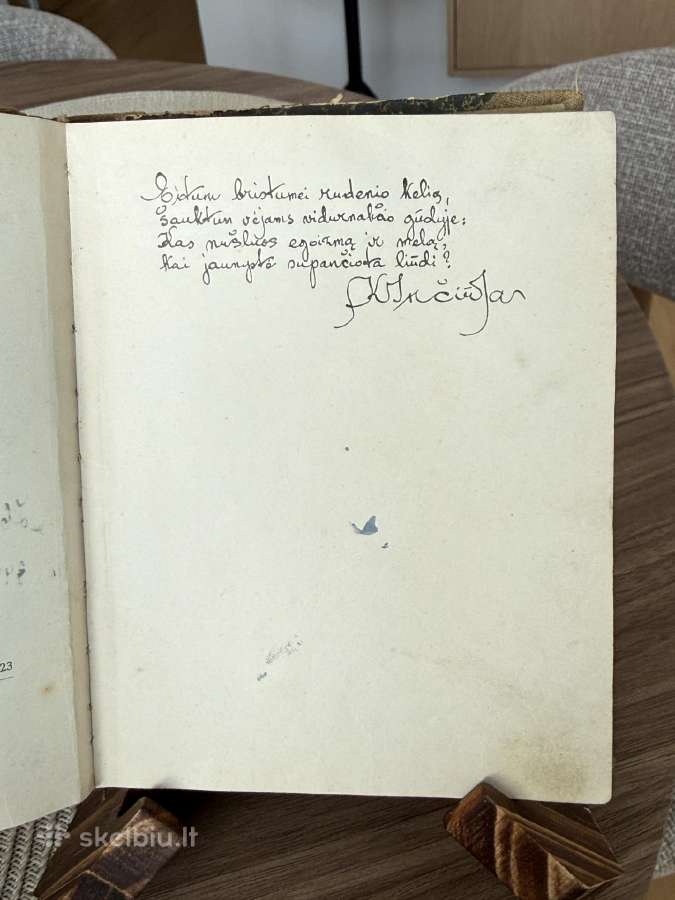 Eitum bristumei rudenio kelią,
Šauktum vėjams vidurnakčio gūdyje:
Kas nušluos egoizmą ir melą,
Kai jaunystė supančiota liūdi?
23
skelbiu.lt